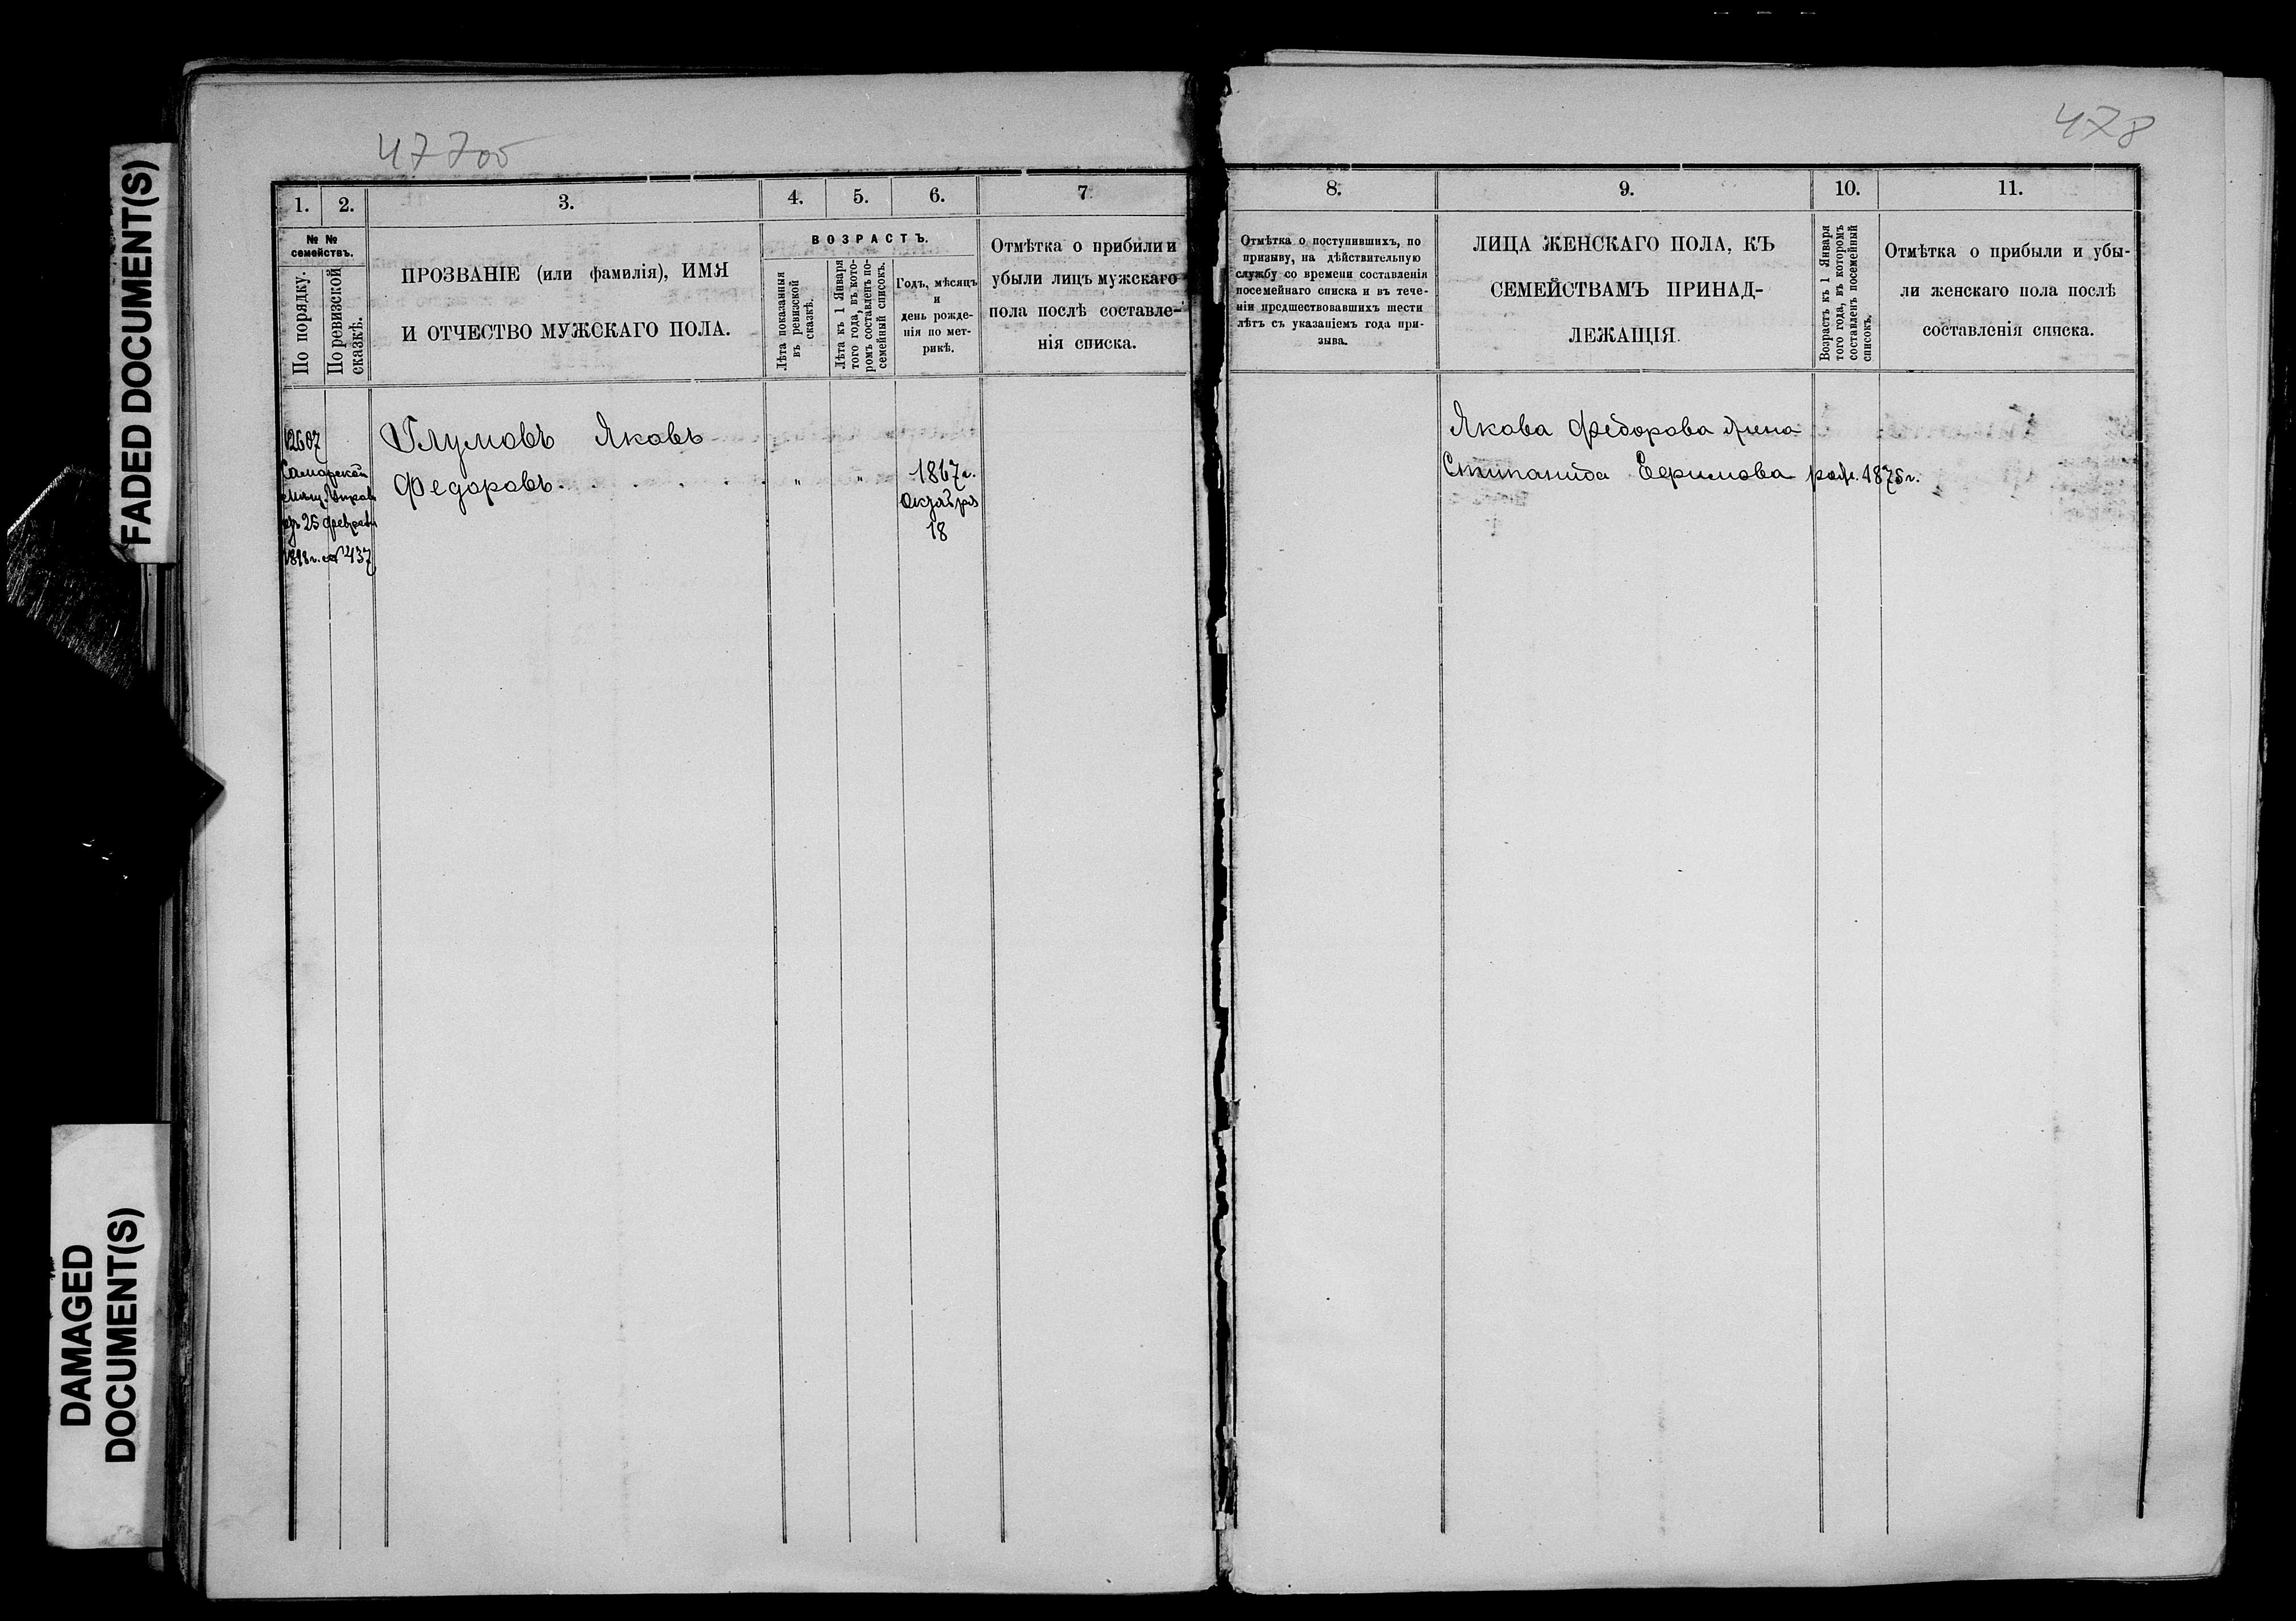 FADED DOCUMENT(S)
DAMAGED
DOCUMENT(S)
477об
1. 2. 3. 4. 5. 6. 7
№ №
семействъ.
По порядку.
По ревизской
сказкѣ.
ПРОЗВАНІЕ (или фамилія), ИМЯ
И ОТЧЕСТВО МУЖСКАГО ПОЛА.
ВОЗРАСТЪ.
Лѣта показанныя
въ ревизской
сказкѣ.
Лѣта къ 1 Января
того года, въ кото-
ромъ составленъ по-
семейный списокъ.
Годъ, мѣсяцъ
и
день рожде-
нія по мет-
рикѣ.
Отмѣтка о прибыли и
убыли лицъ мужскаго
пола послѣ составле-
нія списка.
12607
Самарской
Мѣщ. Управ.
25 феврал
1898 г. № 437
Глумовъ Яковъ
Федоровъ. . . . . . " "
1867 г.
Октября
18
478
8. 9. 10. 11.
Отмѣтка о поступившихъ, по
призыву, на дѣйствительную
службу со времени составленія
посемейнаго списка и въ тече-
ніи предшествовавшихъ шести
лѣтъ съ указаніемъ года при-
зыва.
ЛИЦА ЖЕНСКАГО ПОЛА, КЪ
СЕМЕЙСТВАМЪ ПРИНАД-
ЛЕЖАЩІЯ.
Возрастъ къ 1 Января
того года, въ которомъ
составленъ посемейный
списокъ.
Отмѣтка о прибыли и убы-
ли женскаго пола послѣ
составленія списка.
Якова Федорова жена
Степанида Ефимова родил. 1875 г.